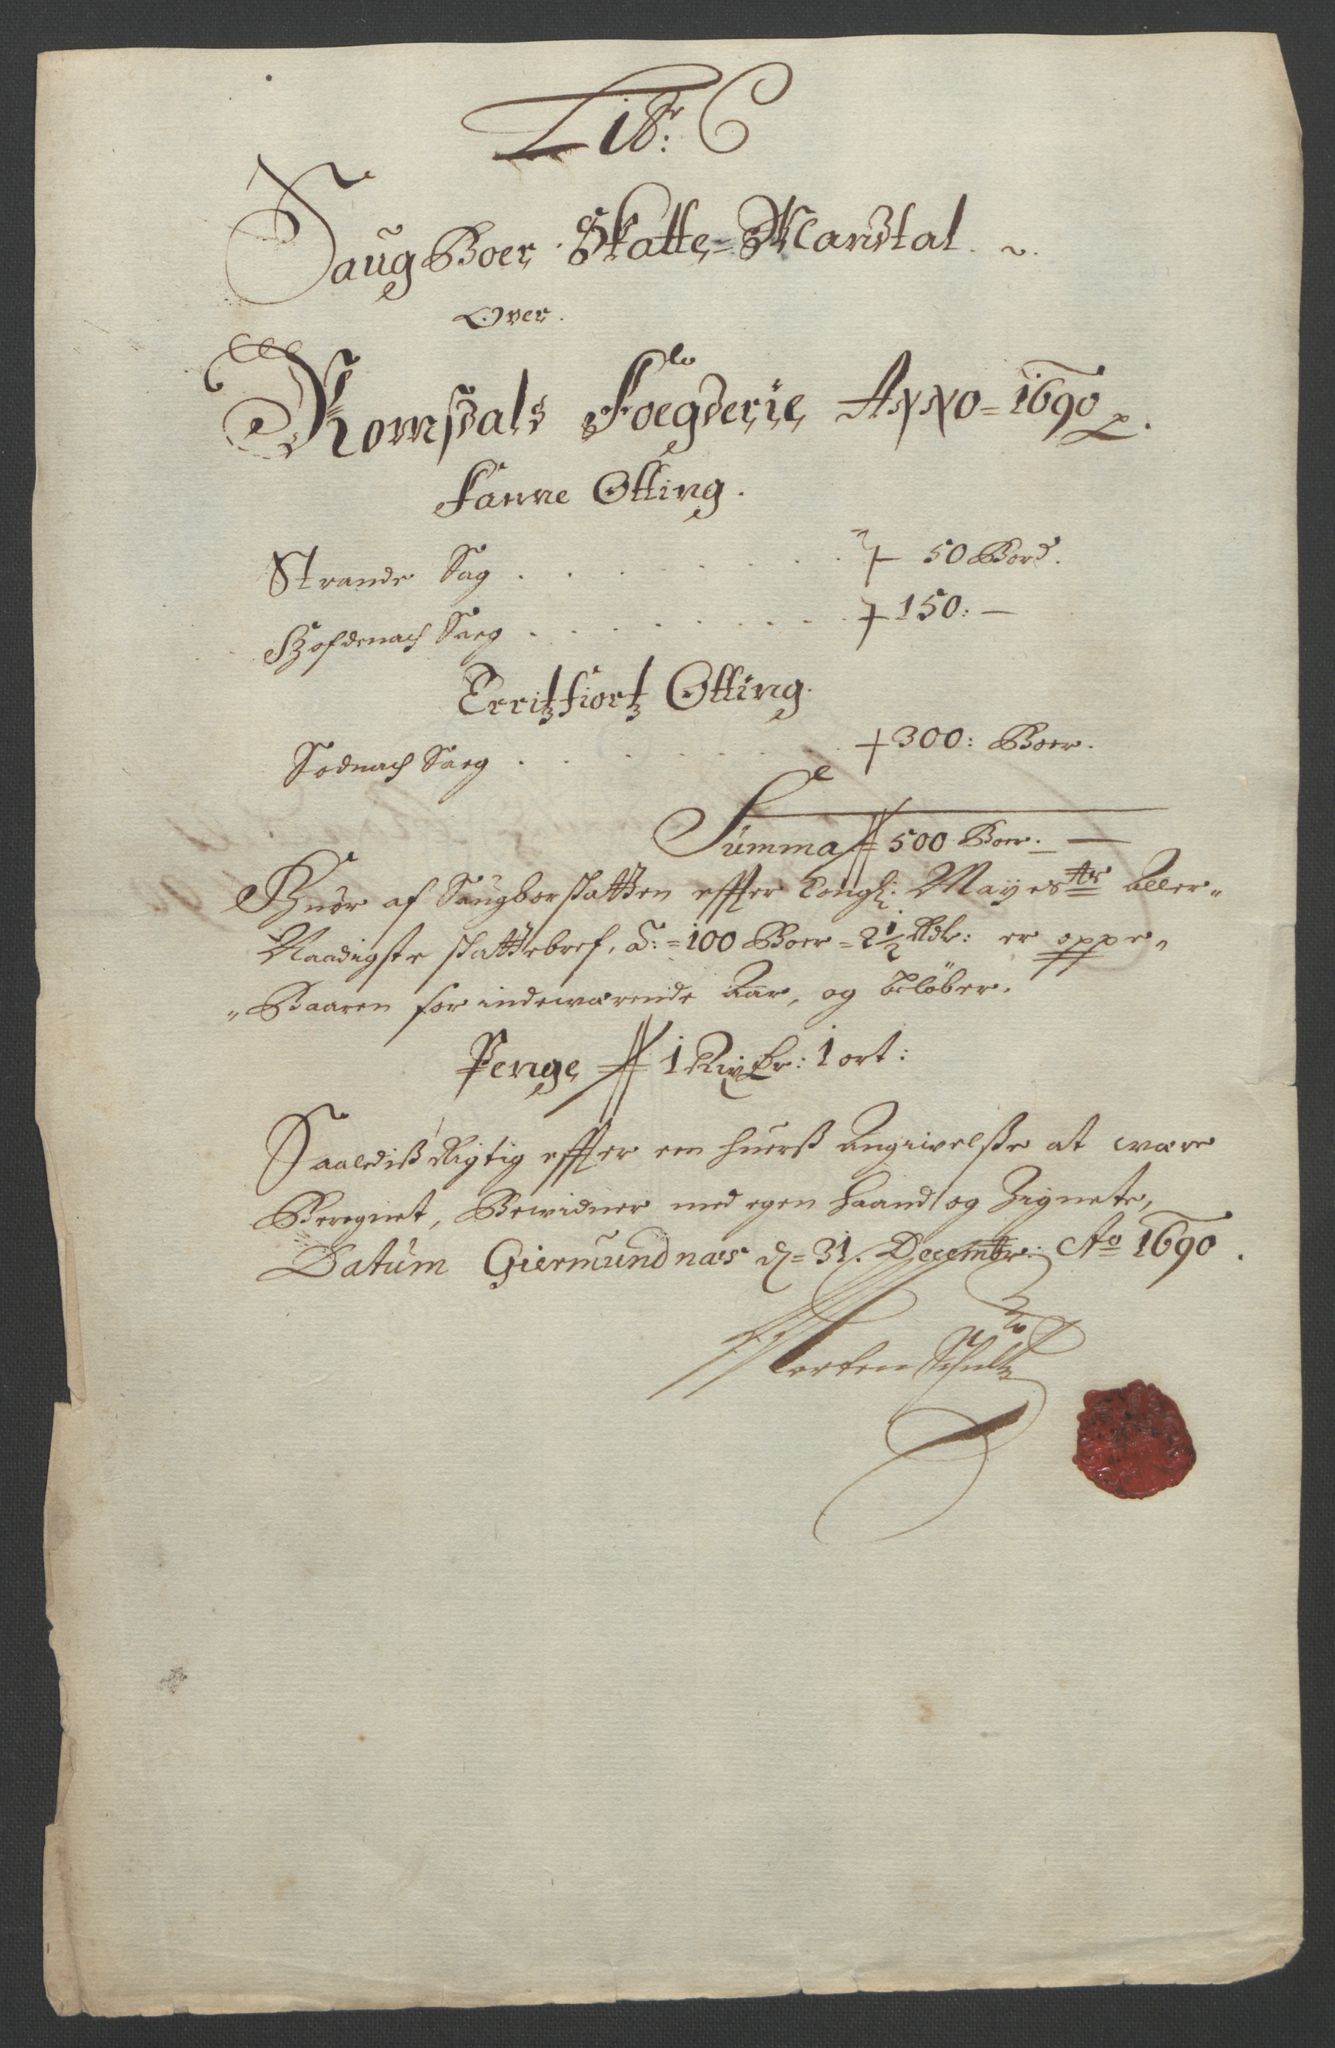 Litr: C
Saug Boer Skatte-Mandtal.
Over.
Romsdals Foegderie Anno = 1690
Fanne Otting.
Strande Sag . . . . . . . 50 Bord.
Hofdenach Sarg . . . . . . . 150: —
Erritzfiortz Otting.
Sodnach Sarg . . . . . . 300: Boer.
Summa 500 Boer. —
Huor af Saugborskatten effter Kongl: Mayestts Aller-
Naadigste skattebref, á: = 100 Boer = 2½ Rdr: er oppe„
„Baaren for indewærende Aar, og beløber.
Penge 1 : 1 ort:
Saaledis Rigtig effter en huerss Angivelsse at wære
Beregnet, Bewidner med egen Haand og Zignete,
Datum Giermundnæs d= 31. Decembr: Ao 1690.
Morten Schultz